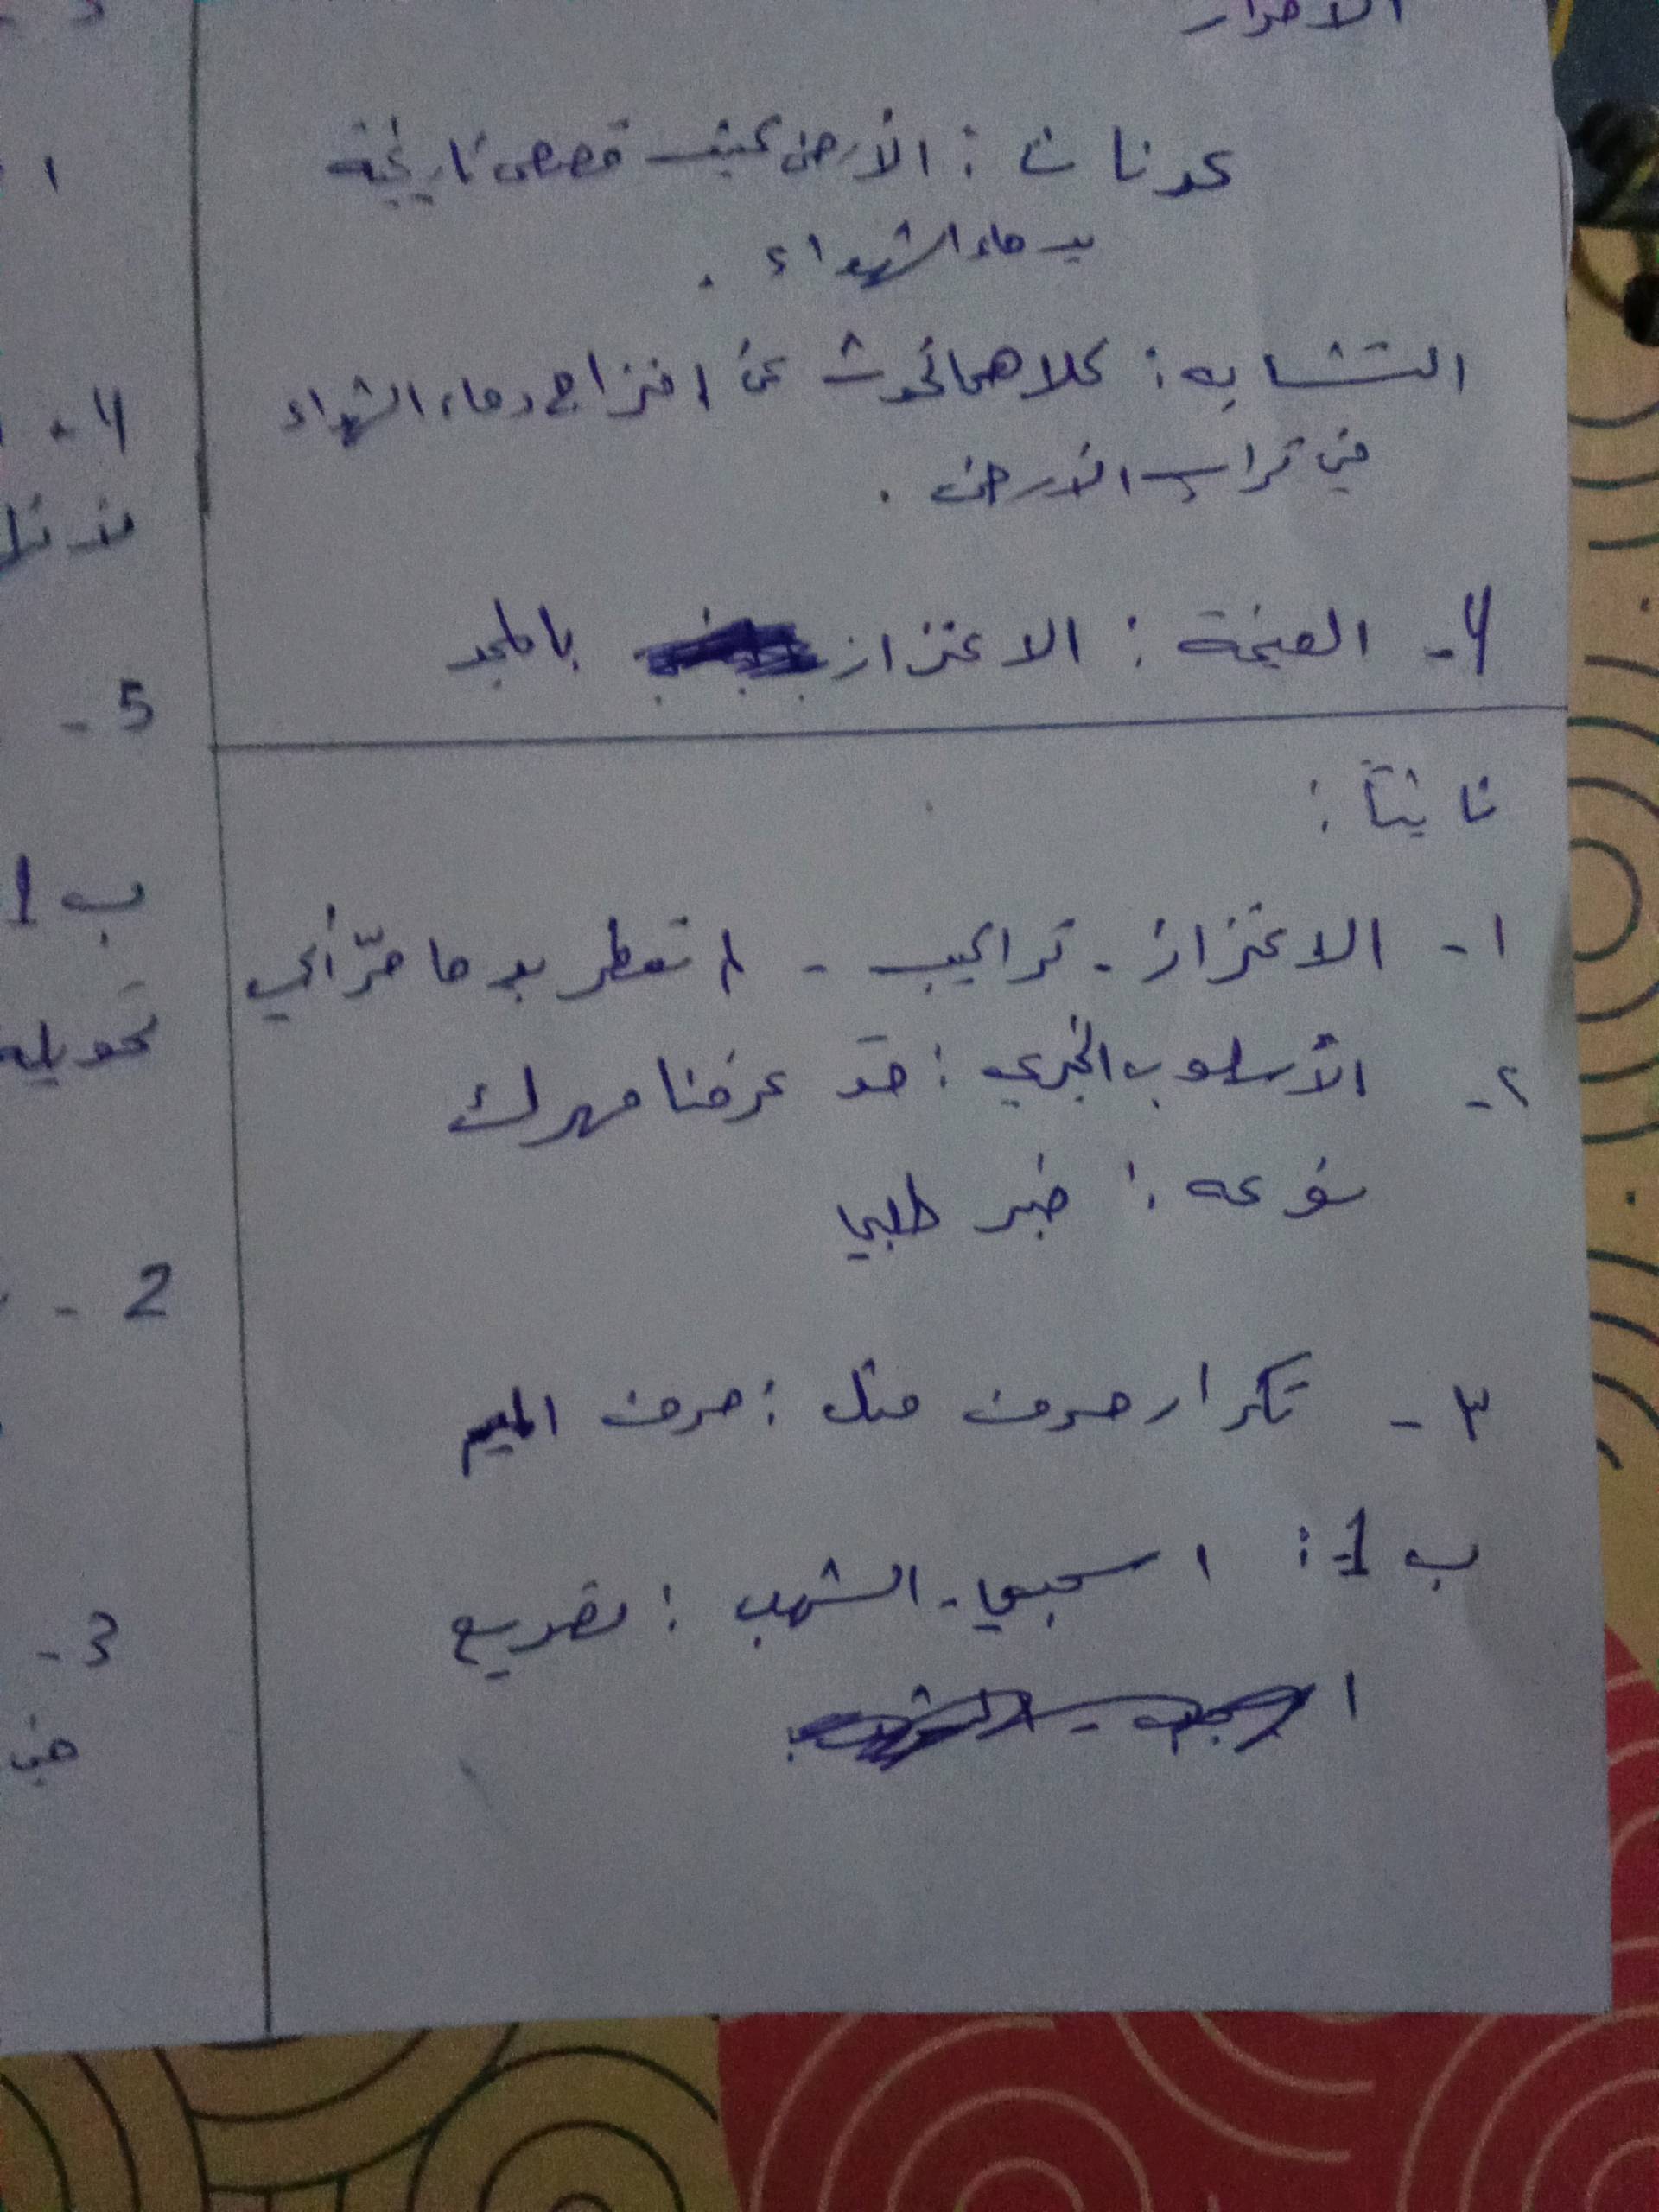 الأحرار
عدنان : الأرض كيف قصص تاريخية
بدماء الشهداء .
التشابه : كلاهما تحدث عن امتزاج دماء الشهداء
في تراب الأرض .
4- القيمة : الاعتزاز بالمجد
ثانيثاً :
١- الاعتزاز - تراكيب - انعطر بدما حرّ أبي
٢- الأسلوب الخبري : قد عرفنا مهرك
نوعه : خبر طلبي
٣- تكرار حروف مثل : حرف الميم
ب 1- : اسحبي - الشهب : تصريع
ا
١
4-
5-
ب 1
تحويله
2-
3-
في